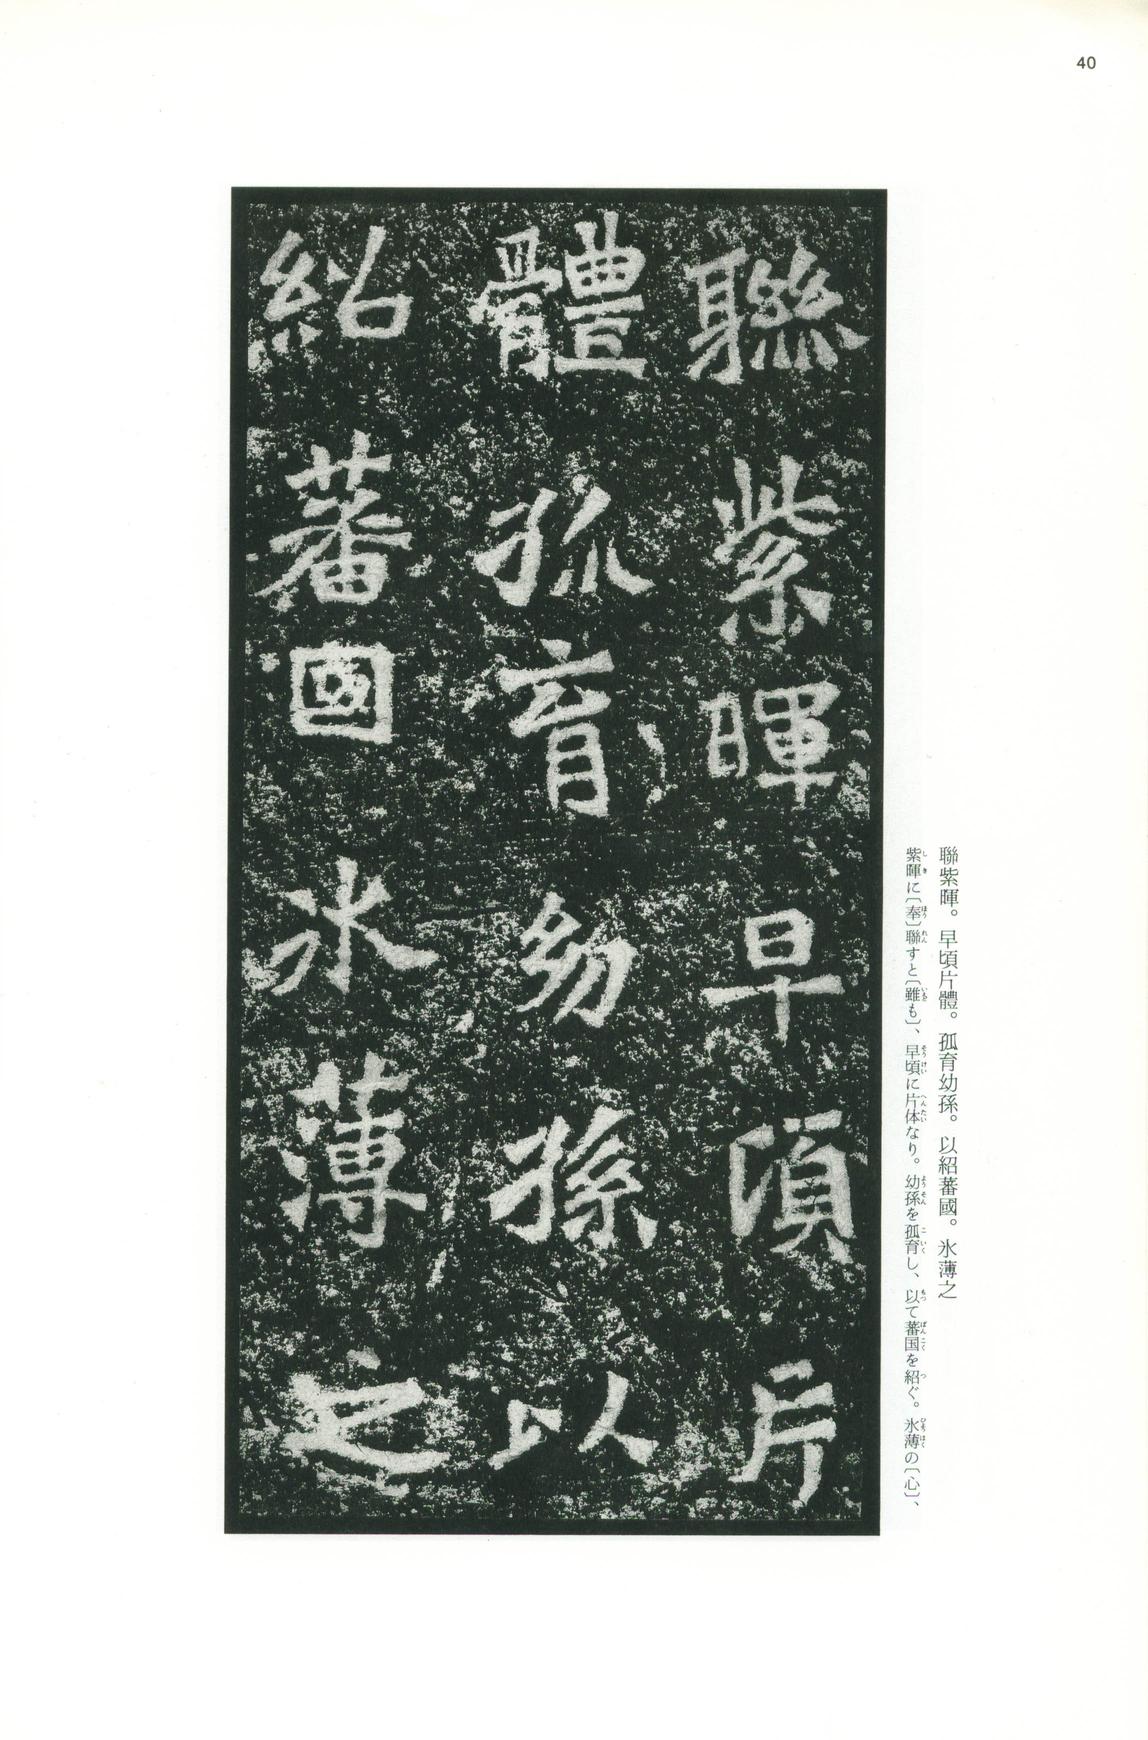 40
聯紫暉早頃片
體孤育幼孫以
紹蕃國氷薄之
聯紫暉。早頃片體。孤育幼孫。以紹蕃國。氷薄之
紫暉に〔奉〕聯すと〔雖も〕、早頃に片体なり。幼孫を孤育し、以て蕃国を紹ぐ。氷薄の〔心〕、